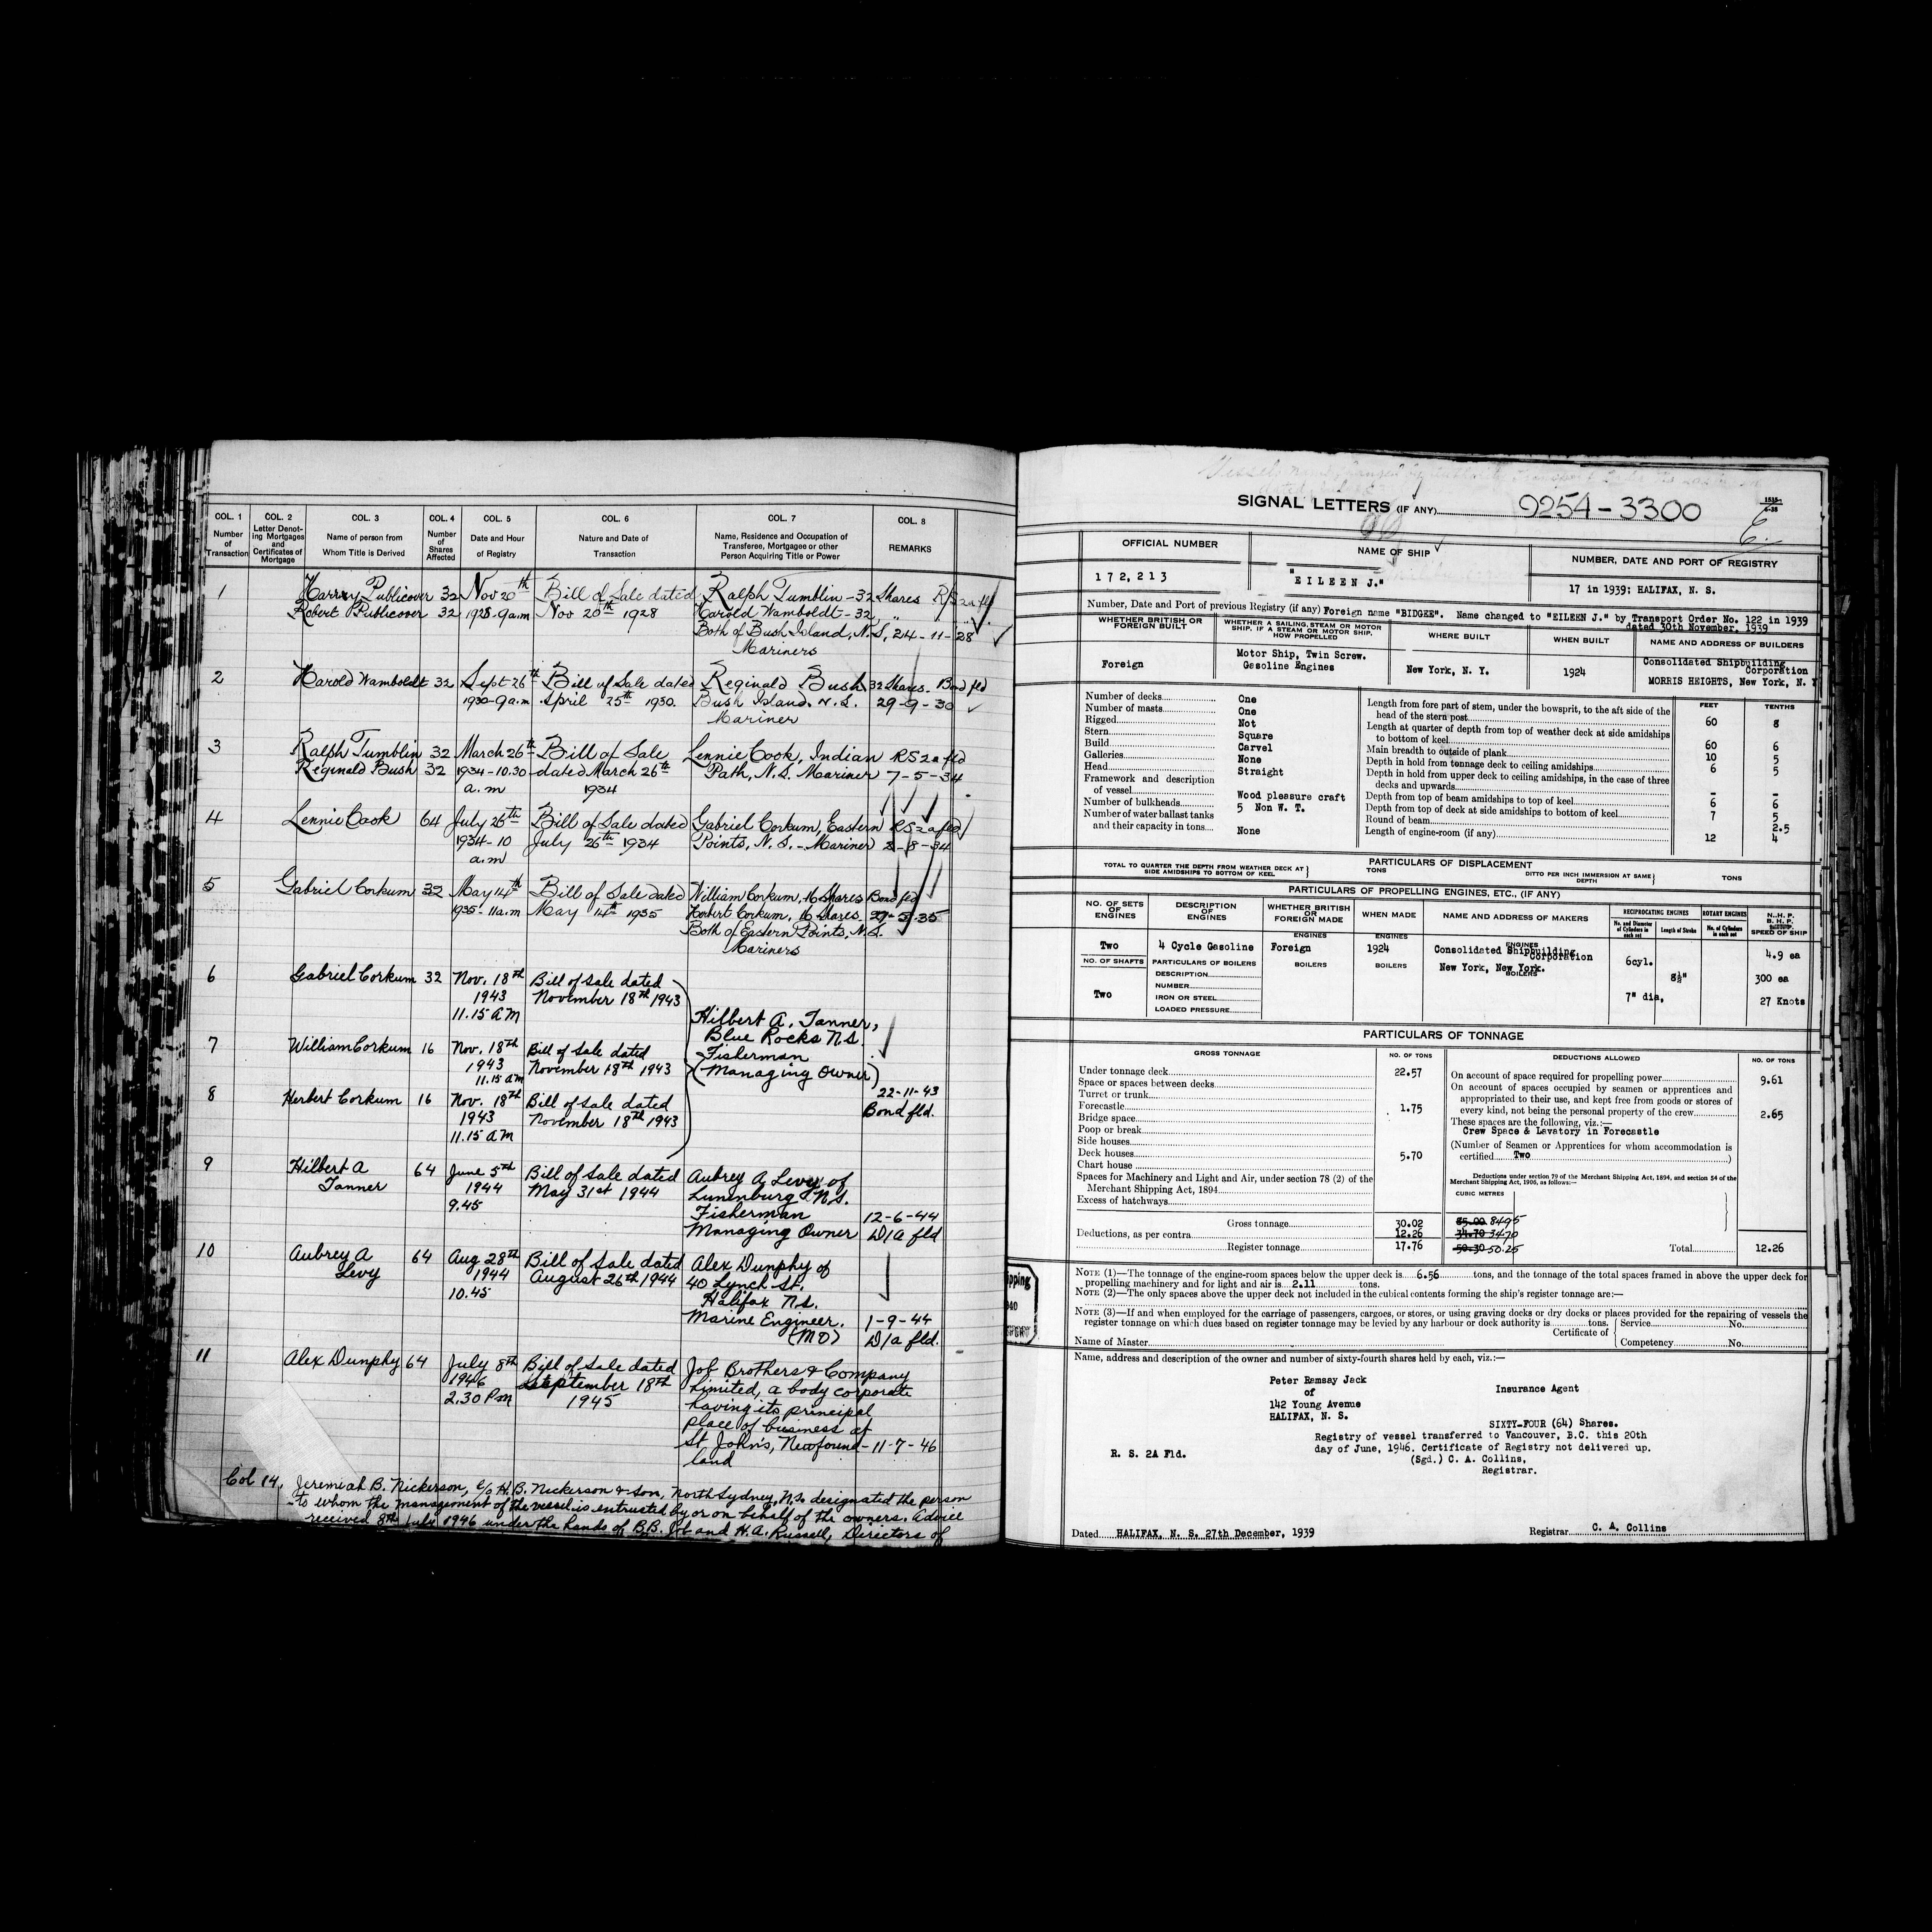 COL. 1 COL. 2 COL. 3 COL. 4 COL. 5 COL. 6 COL. 7 COL. 8
Number of Transaction
Letter Denoting Mortgages and Certificates of Mortgage
Name of person from Whom Title is Derived
Number of Shares Affected
Date and Hour of Registry
Nature and Date of Transaction
Name, Residence and Occupation of Transferee, Mortgagee or other Person Acquiring Title or Power
REMARKS
1 Harry Publicover 32 Nov 20th Bill of Sale dated Ralph Tumblin - 32 Shares RS 2a fld
Robert P Publicover 32 1928-9a.m Nov 20th 1928 Harold Wamboldt - 32 "
Both of Bush Island, N.S, 24-11-28
Mariners
2 Harold Wamboldt 32 Sept 26th Bill of Sale dated Reginald Bush 32 Shares. Bond fld
1930-9a.m April 25th 1930. Bush Island. N.S. 29-9-30
Mariner
3 Ralph Tumblin 32 March 26th Bill of Sale Lennie Cook, Indian RS 2a fld
Reginald Bush 32 1934-10.30 dated March 26th Path, N.S. Mariner 7-5-34
a.m 1934
4 Lennie Cook 64 July 26th Bill of Sale dated Gabriel Corkum, Eastern RS 2a fld
1934-10 July 26th 1934 Points, N.S. - Mariner 2-8-34
a.m
5 Gabriel Corkum 32 May 14th Bill of Sale dated William Corkum, 16 Shares Bond fld
1935-11a.m May 14th 1935 Herbert Corkum, 16 Shares 27-5-35
Both of Eastern Points, N.S.
Mariners
6 Gabriel Corkum 32 Nov. 18th Bill of Sale dated
1943 November 18th 1943
11.15 AM
Hilbert A. Tanner,
Blue Rocks N.S.
7 William Corkum 16 Nov. 18th Bill of Sale dated Fisherman
1943 November 18th 1943 (Managing Owner)
11.15 AM
22-11-43
8 Herbert Corkum 16 Nov. 18th Bill of Sale dated Bond fld.
1943 November 18th 1943
11.15 AM
9 Hilbert A 64 June 5th Bill of Sale dated Aubrey A. Levy of
Tanner 1944 May 31st 1944 Lunenburg N.S.
9.45 Fisherman 12-6-44
Managing Owner D/a fld
10 Aubrey A 64 Aug 28th Bill of Sale dated Alex Dunphy of
Levy 1944 August 26th 1944 40 Lynch St.
10.45 Halifax N.S.
Marine Engineer. 1-9-44
(MO) D/a fld.
11 Alex Dunphy 64 July 8th Bill of Sale dated Job Brothers & Company
1946 September 18th Limited, a body corporate
2.30 Pm 1945 having its principal
place of business at
St John's, Newfound- 11-7-46
land
Col 14. Jeremiah B. Nickerson, c/o H.B. Nickerson & Son, North Sydney, N.S. designated the person
to whom the management of the vessel is entrusted by or on behalf of the owners. Advice
received 8th July 1946 under the hands of B.B. Job and H.A. Russell, Directors of
SIGNAL LETTERS (IF ANY) 9254-3300
6.
OFFICIAL NUMBER NAME OF SHIP NUMBER, DATE AND PORT OF REGISTRY
172,213 "EILEEN J." 17 in 1939; HALIFAX, N. S.
Number, Date and Port of previous Registry (if any) Foreign name "BIDGEE". Name changed to "EILEEN J." by Transport Order No. 122 in 1939
dated 30th November. 1939
WHETHER BRITISH OR FOREIGN BUILT
WHETHER A SAILING, STEAM OR MOTOR SHIP. IF A STEAM OR MOTOR SHIP, HOW PROPELLED
WHERE BUILT WHEN BUILT NAME AND ADDRESS OF BUILDERS
Foreign
Motor Ship, Twin Screw.
Gasoline Engines
New York, N. Y. 1924
Consolidated Shipbuilding
Corporation
MORRIS HEIGHTS, New York, N. Y
Number of decks One
Number of masts One
Rigged Not
Stern Square
Build Carvel
Galleries None
Head Straight
Framework and description
of vessel Wood pleasure craft
Number of bulkheads 5 Non W. T.
Number of water ballast tanks
and their capacity in tons None
FEET TENTHS
Length from fore part of stem, under the bowsprit, to the aft side of the
head of the stern post 60 8
Length at quarter of depth from top of weather deck at side amidships
to bottom of keel 60 6
Main breadth to outside of plank 10 5
Depth in hold from tonnage deck to ceiling amidships 6 5
Depth in hold from upper deck to ceiling amidships, in the case of three
decks and upwards - -
Depth from top of beam amidships to top of keel 6 6
Depth from top of deck at side amidships to bottom of keel 7 5
Round of beam 2.5
Length of engine-room (if any) 12 4
PARTICULARS OF DISPLACEMENT
TOTAL TO QUARTER THE DEPTH FROM WEATHER DECK AT SIDE AMIDSHIPS TO BOTTOM OF KEEL TONS DITTO PER INCH IMMERSION AT SAME DEPTH TONS
PARTICULARS OF PROPELLING ENGINES, ETC., (IF ANY)
NO. OF SETS OF ENGINES
DESCRIPTION OF ENGINES
WHETHER BRITISH OR FOREIGN MADE
WHEN MADE
NAME AND ADDRESS OF MAKERS
RECIPROCATING ENGINES ROTARY ENGINES
No. and Diameter of Cylinders in each set
Length of Stroke
No. of Cylinders in each set
N. H. P.
B. H. P.
SPEED OF SHIP
ENGINES ENGINES ENGINES
Two 4 Cycle Gasoline Foreign 1924 Consolidated Shipbuilding
Corporation
New York, New York.
6cyl. 4.9 ea
NO. OF SHAFTS PARTICULARS OF BOILERS BOILERS BOILERS BOILERS
DESCRIPTION 8½" 300 ea
NUMBER
Two IRON OR STEEL 7" dia, 27 Knots
LOADED PRESSURE
PARTICULARS OF TONNAGE
GROSS TONNAGE NO. OF TONS DEDUCTIONS ALLOWED NO. OF TONS
Under tonnage deck 22.57
Space or spaces between decks
Turret or trunk
Forecastle 1.75
Bridge space
Poop or break
Side houses
Deck houses 5.70
Chart house
Spaces for Machinery and Light and Air, under section 78 (2) of the
Merchant Shipping Act, 1894
Excess of hatchways
Gross tonnage 30.02
Deductions, as per contra 12.26
Register tonnage 17.76
On account of space required for propelling power 9.61
On account of spaces occupied by seamen or apprentices and
appropriated to their use, and kept free from goods or stores of
every kind, not being the personal property of the crew 2.65
These spaces are the following, viz.:—
Crew Space & Lavatory in Forecastle
(Number of Seamen or Apprentices for whom accommodation is
certified Two )
Deductions under section 79 of the Merchant Shipping Act, 1894, and section 54 of the
Merchant Shipping Act, 1906, as follows:—
CUBIC METRES
85.00 84.95
34.70 34.70
50.30 50.25
Total 12.26
NOTE (1)—The tonnage of the engine-room spaces below the upper deck is 6.56 tons, and the tonnage of the total spaces framed in above the upper deck for
propelling machinery and for light and air is 2.11 tons.
NOTE (2)—The only spaces above the upper deck not included in the cubical contents forming the ship's register tonnage are:—
NOTE (3)—If and when employed for the carriage of passengers, cargoes, or stores, or using graving docks or dry docks or places provided for the repairing of vessels the
register tonnage on which dues based on register tonnage may be levied by any harbour or dock authority is tons.
Certificate of Service No.
Competency No.
Name of Master
Name, address and description of the owner and number of sixty-fourth shares held by each, viz.:—
Peter Ramsay Jack
of
142 Young Avenue
HALIFAX, N. S.
Insurance Agent
SIXTY-FOUR (64) Shares.
Registry of vessel transferred to Vancouver, B.C. this 20th
day of June, 1946. Certificate of Registry not delivered up.
(Sgd.) C. A. Collins,
Registrar.
R. S. 2A Fld.
Dated HALIFAX, N. S. 27th December, 1939 Registrar C. A. Collins